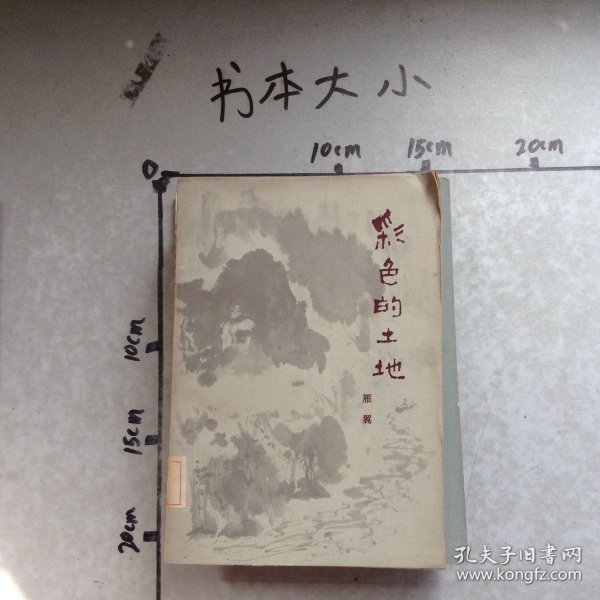 书本大小
0
10cm
15cm
20cm
10cm
15cm
20cm
彩色的土地
雁翼
孔夫子旧书网
www.kongfz.com